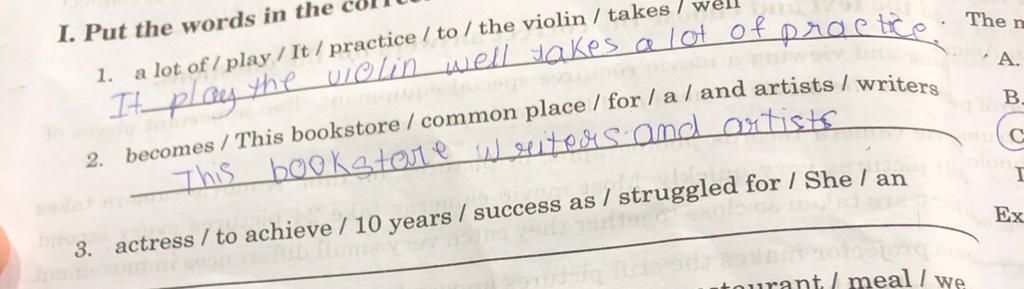 I. Put the words in the
1. a lot of / play / It / practice / to / the violin / takes / well
It play the violin well takes a lot of practice.
2. becomes / This bookstore / common place / for / a / and artists / writers
This bookstore writers and artists
3. actress / to achieve / 10 years / success as / struggled for / She / an
meal / we
The
A.
B.
C
Ex